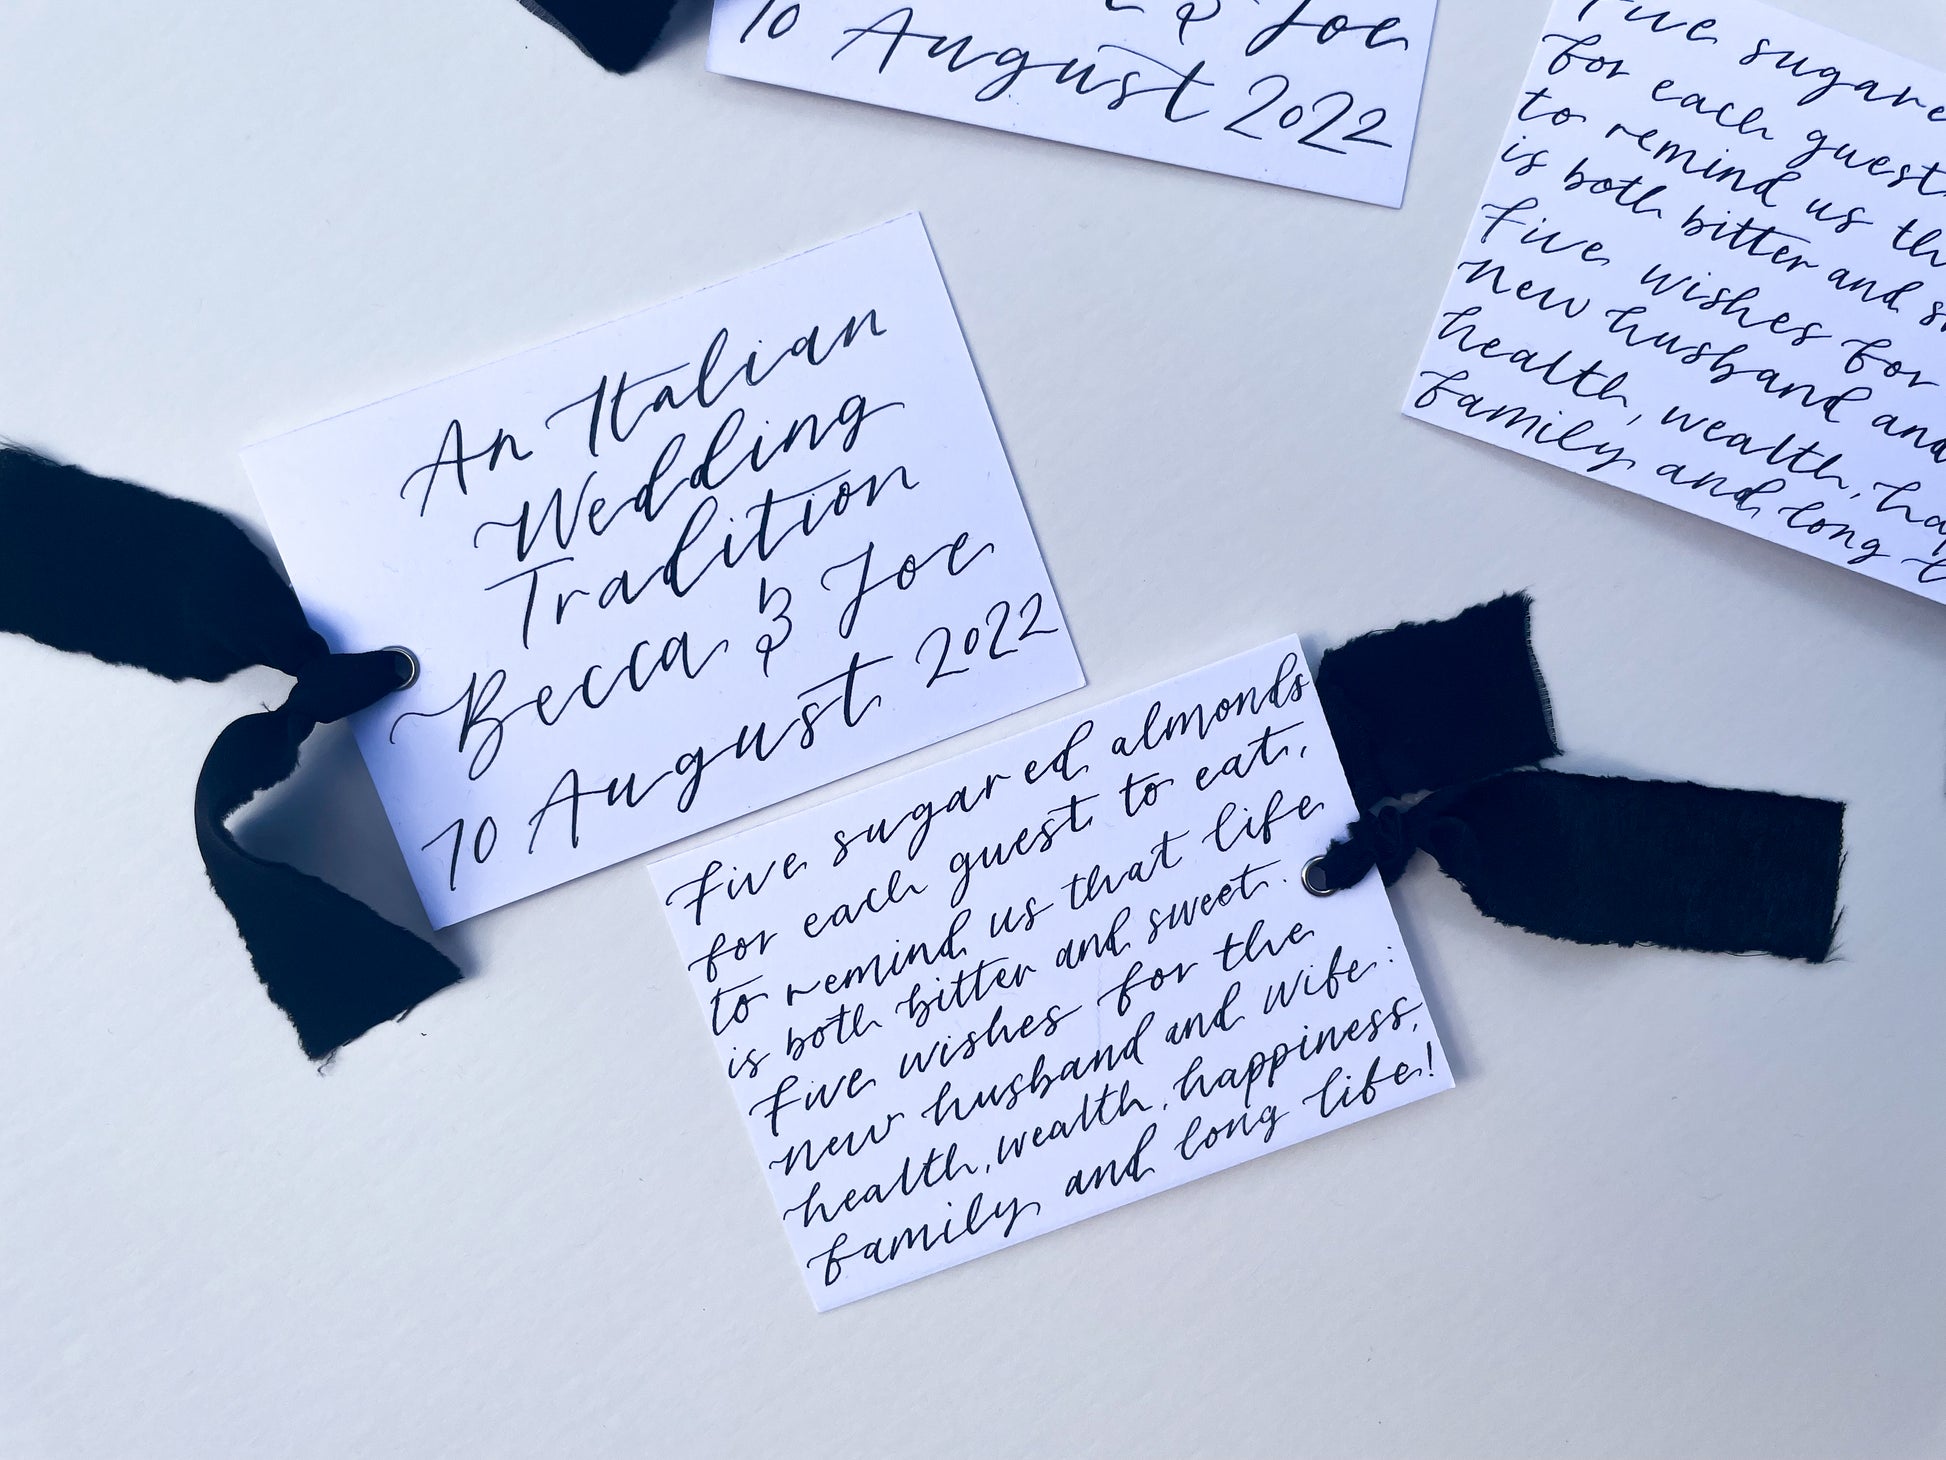 & Joe
10 August 2022
Five sugared
for each guest
to remind us
is both bitter and
Five wishes for
new husband and
health, wealth,
family and long
An Italian
Wedding
Tradition
Becca & Joe
10 August 2022
Five sugared almonds
for each guest to eat,
to remind us that life
is both bitter and sweet.
Five wishes for the
new husband and wife:
health, wealth, happiness,
family and long life!